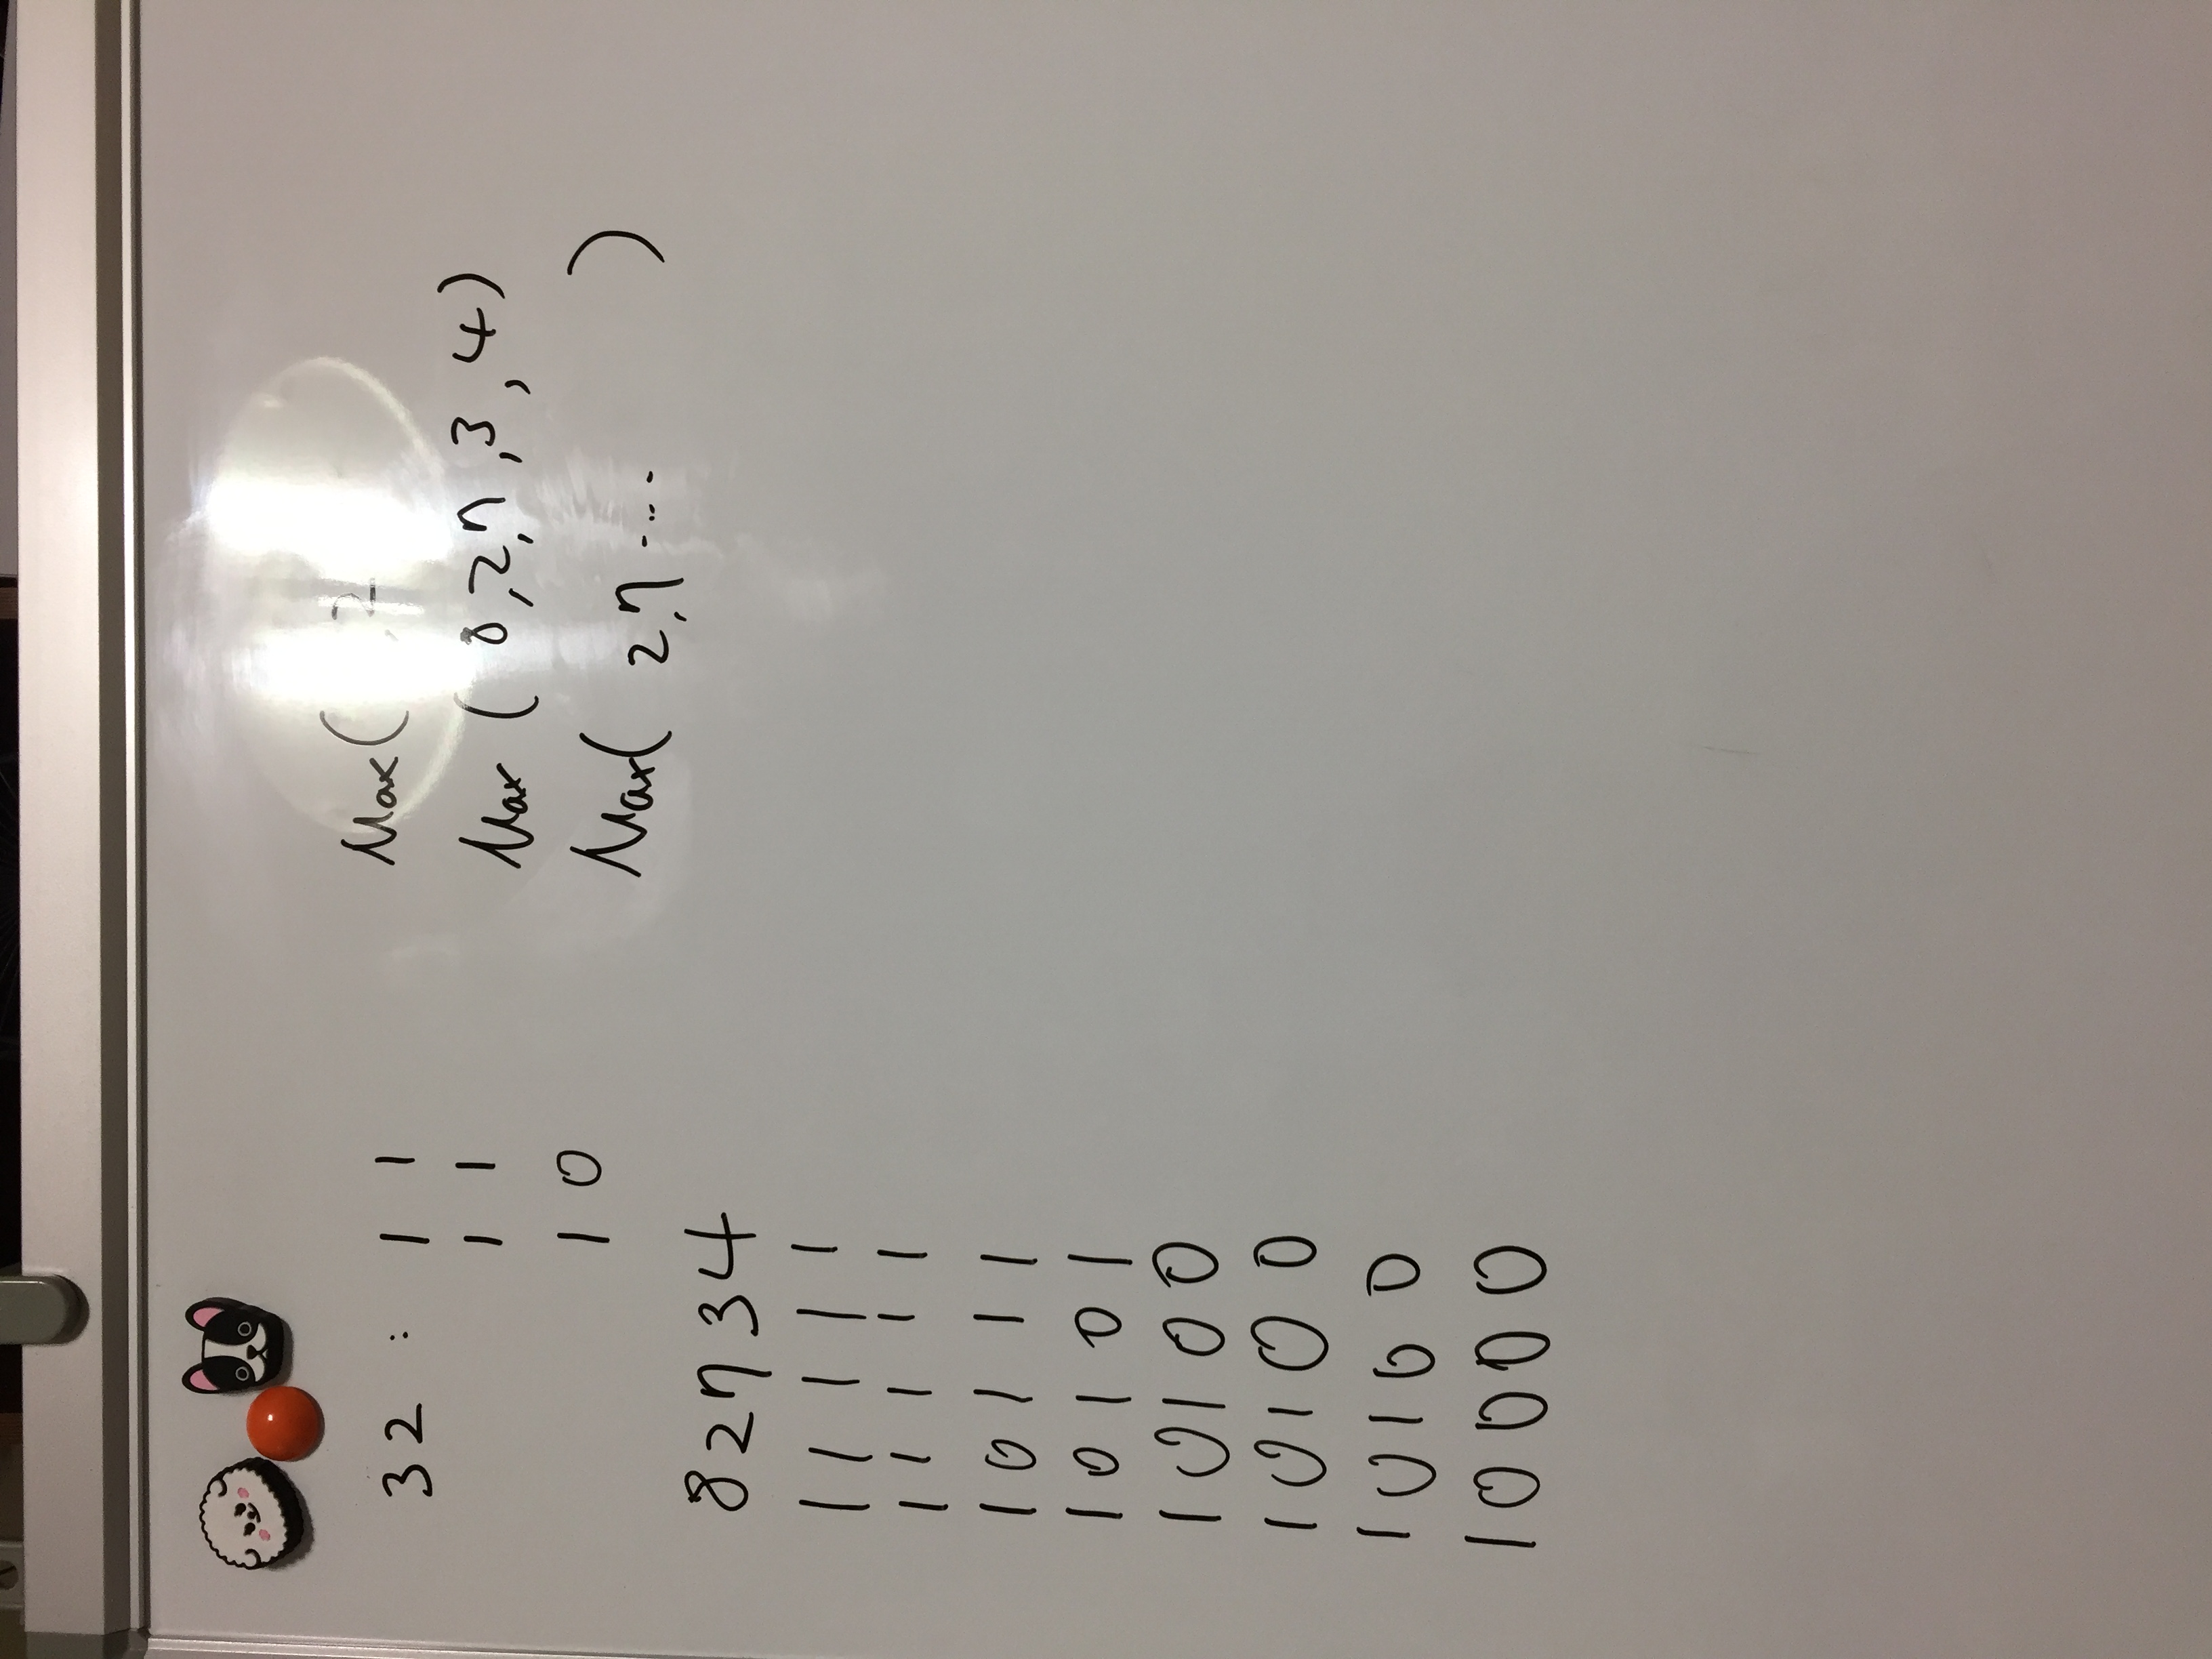 32 : 1 1
1 1
1 0
82734
1 1 1 1 1
1 1 1 1 1
1 0 1 1 1
1 0 1 0 1
1 0 1 0 0
1 0 1 0 0
1 0 1 0 0
1 0 0 0 0
Max( ,2
Max ( 8,2,7,3,4)
Max( 2,7 ---- )